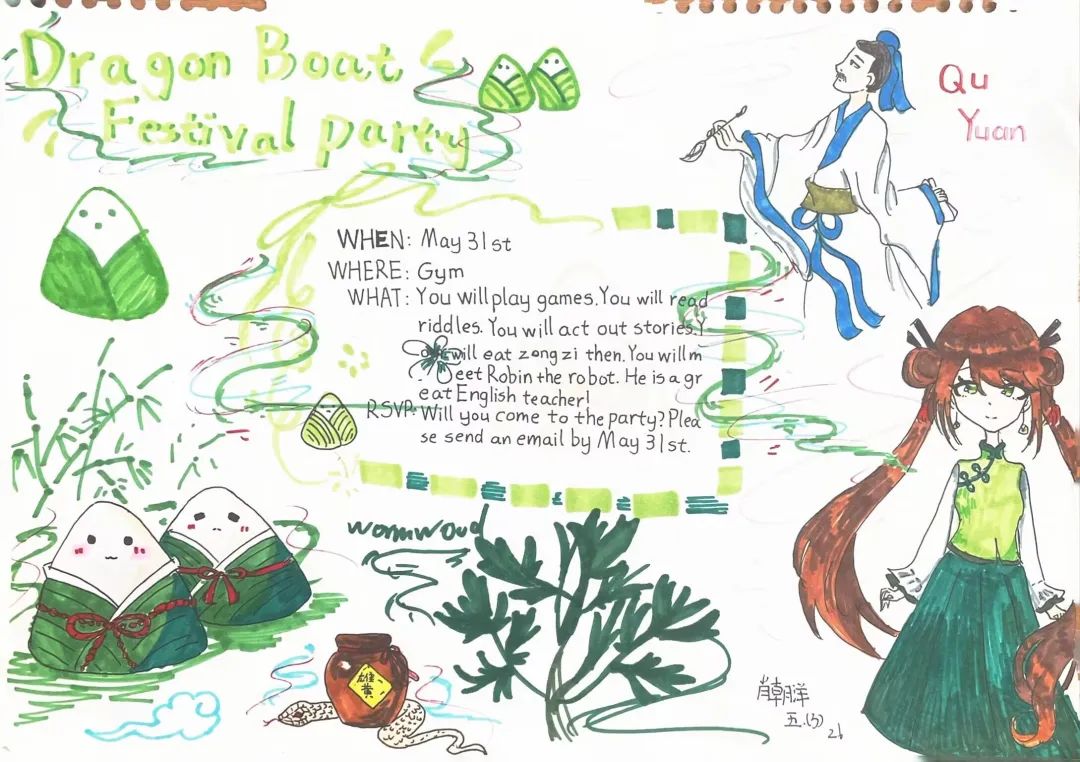 Dragon Boat
Festival party
Qu
Yuan
WHEN: May 31st
WHERE: Gym
WHAT: You will play games. You will read
riddles. You will act out stories. Y
ou will eat zongzi then. You will m
eet Robin the robot. He is a gr
eat English teacher!
RSVP: Will you come to the party? Plea
se send an email by May 31st.
wormwood
雄
黄
肖朝洋
五.(3)